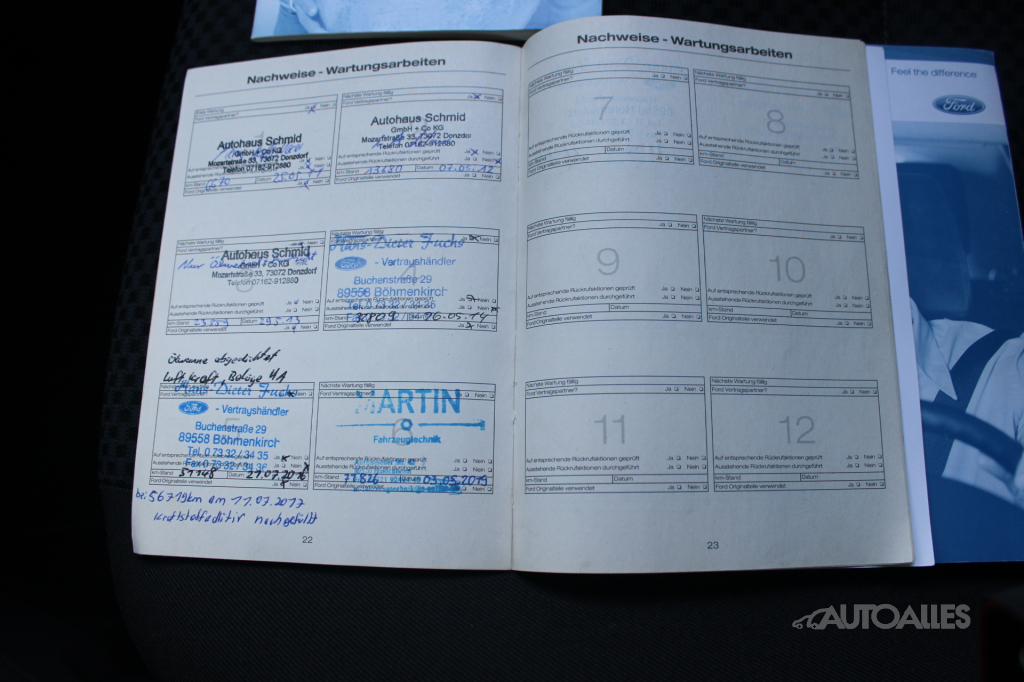 Nachweise - Wartungsarbeiten
Ford Vertragspartner? Ja Nein
Autohaus Schmid
GmbH + Co KG
Mozartstraße 33, 73072 Donzdorf
Telefon 07162-912880
km-Stand Datum 25.05.11
Ford Originalteile verwendet Ja Nein
Nächste Wartung fällig
Ford Vertragspartner? Ja Nein
Autohaus Schmid
GmbH + Co KG
Mozartstraße 33, 73072 Donzdorf
Telefon 07162-912880
Auf entsprechende Rückrufaktionen geprüft Ja Nein
Ausstehende Rückrufaktionen durchgeführt Ja Nein
km-Stand 13680 Datum 07.05.12
Ford Originalteile verwendet Ja Nein
Nächste Wartung fällig
Ford Vertragspartner? Ja Nein
Autohaus Schmid
GmbH + Co KG
Mozartstraße 33, 73072 Donzdorf
Telefon 07162-912880
3
Auf entsprechende Rückrufaktionen geprüft Ja Nein
Ausstehende Rückrufaktionen durchgeführt Ja Nein
km-Stand Datum 29.5.13
Ford Originalteile verwendet Ja Nein
Nächste Wartung fällig
Hans-Dieter Fuchs
Ford - Vertragshändler
4
Buchenstraße 29
89558 Böhmenkirch
26.05.14
Ford Originalteile verwendet Ja Nein
Ölwanne abgedichtet
Luft, Kraft, Beläge H.A
Nächste Wartung fällig
Hans-Dieter Fuchs
Ford - Vertragshändler
5
Buchenstraße 29
89558 Böhmenkirch
Tel. 0 73 32 / 34 35
Fax 0 73 32 / 34 36
km-Stand 51148 Datum 21.07.2016
Ford Originalteile verwendet Ja Nein
Nächste Wartung fällig
Ford Vertragspartner? Ja Nein
MARTIN
Fahrzeugtechnik
6
Auf entsprechende Rückrufaktionen geprüft Ja Nein
Ausstehende Rückrufaktionen durchgeführt Ja Nein
77826 03.05.2019
bei 56719km am 11.07.2017
Kraftstoffadditiv nachgefüllt
22
Nachweise - Wartungsarbeiten
Nächste Wartung fällig
Ford Vertragspartner? Ja Nein
7
Auf entsprechende Rückrufaktionen geprüft Ja Nein
Ausstehende Rückrufaktionen durchgeführt Ja Nein
km-Stand Datum
Ford Originalteile verwendet Ja Nein
Nächste Wartung fällig
Ford Vertragspartner? Ja Nein
8
Auf entsprechende Rückrufaktionen geprüft Ja Nein
Ausstehende Rückrufaktionen durchgeführt Ja Nein
km-Stand Datum
Ford Originalteile verwendet Ja Nein
Nächste Wartung fällig
Ford Vertragspartner? Ja Nein
9
Auf entsprechende Rückrufaktionen geprüft Ja Nein
Ausstehende Rückrufaktionen durchgeführt Ja Nein
km-Stand Datum
Ford Originalteile verwendet Ja Nein
Nächste Wartung fällig
Ford Vertragspartner? Ja Nein
10
Auf entsprechende Rückrufaktionen geprüft Ja Nein
Ausstehende Rückrufaktionen durchgeführt Ja Nein
km-Stand Datum
Ford Originalteile verwendet Ja Nein
Nächste Wartung fällig
Ford Vertragspartner? Ja Nein
11
Auf entsprechende Rückrufaktionen geprüft Ja Nein
Ausstehende Rückrufaktionen durchgeführt Ja Nein
km-Stand Datum
Ford Originalteile verwendet Ja Nein
Nächste Wartung fällig
Ford Vertragspartner? Ja Nein
12
Auf entsprechende Rückrufaktionen geprüft Ja Nein
Ausstehende Rückrufaktionen durchgeführt Ja Nein
km-Stand Datum
Ford Originalteile verwendet Ja Nein
23
Feel the difference
Ford
AUTOALLES